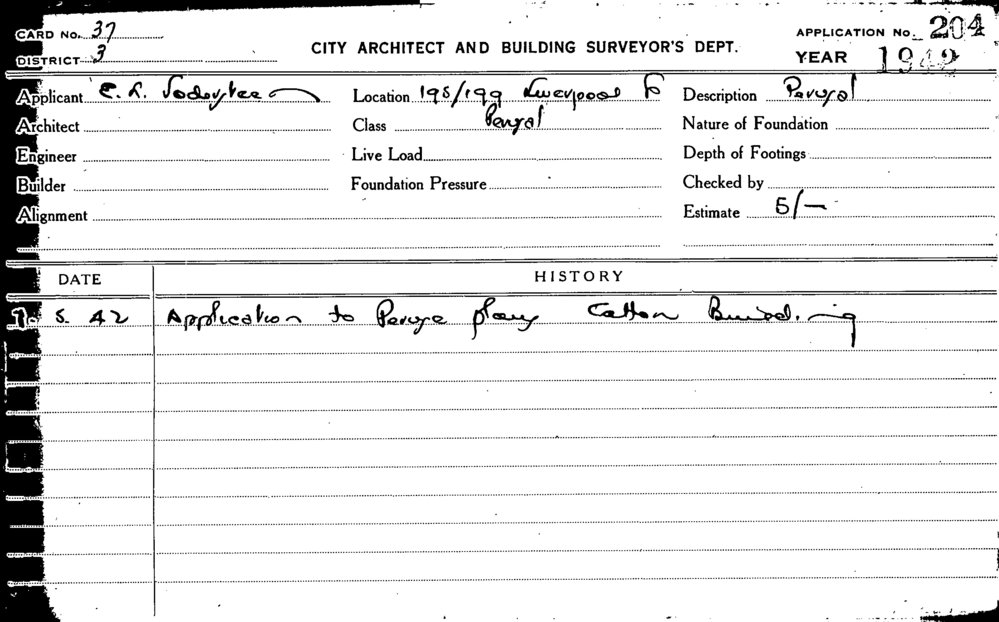 CARD No. 37
DISTRICT 3
CITY ARCHITECT AND BUILDING SURVEYOR'S DEPT.
APPLICATION No. 204
YEAR 1942
Applicant E. R.
Location 195/199 Liverpool
Description Perusal
Architect
Class Perusal
Nature of Foundation
Engineer
Live Load
Depth of Footings
Builder
Foundation Pressure
Checked by
Alignment
Estimate 5/-
DATE HISTORY
7. 5. 42 Application to Peruse plans Catton Building